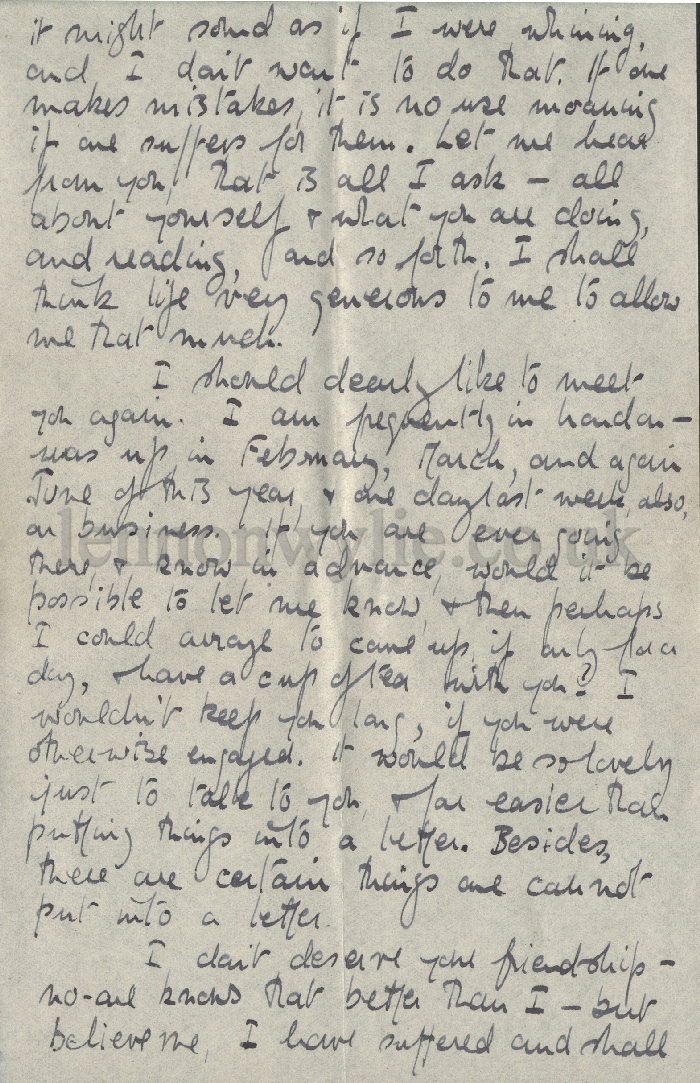 it might sound as if I were whining,
and I don't want to do that. If one
makes mistakes, it is no use moaning
if one suffers for them. Let me hear
from you, that is all I ask — all
about yourself & what you are doing,
and reading, and so forth. I shall
think life very generous to me to allow
me that much.
I should dearly like to meet
you again. I am frequently in London —
was up in February, March, and again
June of this year, & one day last week, also,
on business. If you are ever going
there, & know in advance, would it be
possible to let me know, & then perhaps
I could arrange to come up, if only for a
day, & have a cup of tea with you? I
wouldn't keep you long, if you were
otherwise engaged. It would be so lovely
just to talk to you, & far easier than
putting things into a letter. Besides,
there are certain things one cannot
put into a letter.
I don't deserve your friendship —
no-one knows that better than I — but
believe me, I have suffered and shall
lennonwylie.co.uk